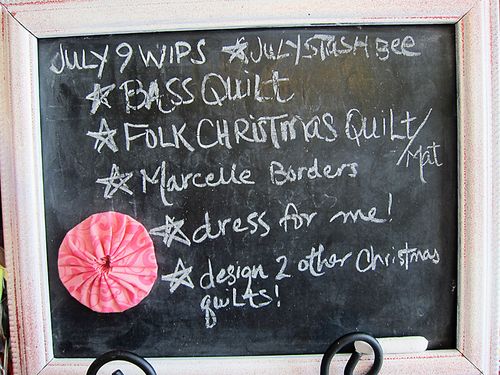 JULY 9 WIPS ☆JULYSTASH Bee
☆BASS QUILT
☆FOLK CHRISTMAS QUILT/Mat
☆Marcelle Borders
☆dress for me!
☆design 2 other Christmas
quilts!